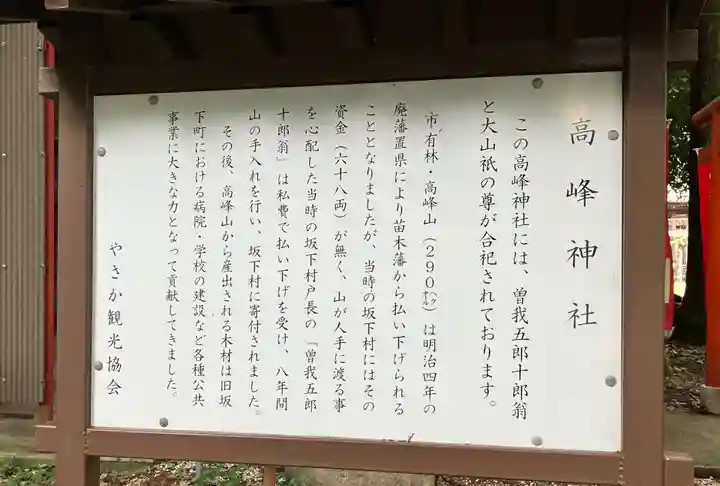 高峰神社
この高峰神社には、曽我五郎十郎翁
と大山祇の尊が合祀されております。
市有林・高峰山(290㌶)は明治四年の
廃藩置県により苗木藩から払い下げられる
こととなりましたが、当時の坂下村にはその
資金(六十八両)が無く、山が人手に渡る事
を心配した当時の坂下村戸長の「曽我五郎
十郎翁」は私費で払い下げを受け、八年間
山の手入れを行い、坂下村に寄付されました。
その後、高峰山から産出される木材は旧坂
下町における病院・学校の建設など各種公共
事業に大きな力となって貢献してきました。
やさか観光協会